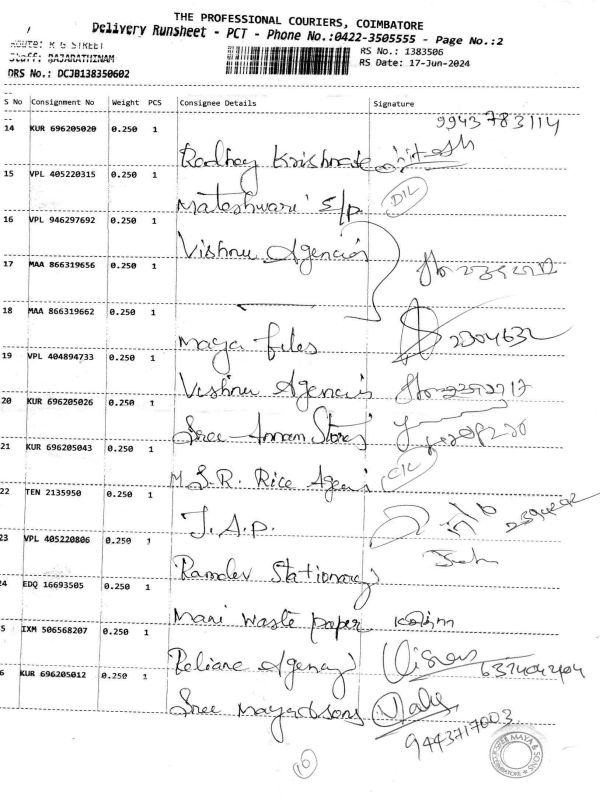 THE PROFESSIONAL COURIERS, COIMBATORE
Delivery Runsheet - PCT - Phone No.:0422-3505555 - Page No.:2
Route: R G STREET
RS No.: 1383506
Staff: RAJARATHINAM
RS Date: 17-Jun-2024
DRS No.: DCJB138350602
S No Consignment No Weight PCS Consignee Details Signature
9943783114
14 KUR 696205020 0.250 1
Radhay Krishna
15 VPL 405220315 0.250 1
Mateshwari S/P. D/L
16 VPL 946297692 0.250 1
Vishnu Agencies
17 MAA 866319656 0.250 1
18 MAA 866319662 0.250 1
Maya files 2304632
19 VPL 404894733 0.250 1
Vishnu Agencies
20 KUR 696205026 0.250 1
Sree Annam Stores
21 KUR 696205043 0.250 1
M.S.R. Rice Agenc
22 TEN 2135950 0.250 1
J.A.P.
23 VPL 405220806 0.250 1
Ramdev Stationary
24 EDQ 16693505 0.250 1
Mani waste paper
5 IXM 506568207 0.250 1
Reliance Agency
6 KUR 696205012 0.250 1
Sree Maya & sons
9443717003
SREE MAYA & SONS
COIMBATORE
10